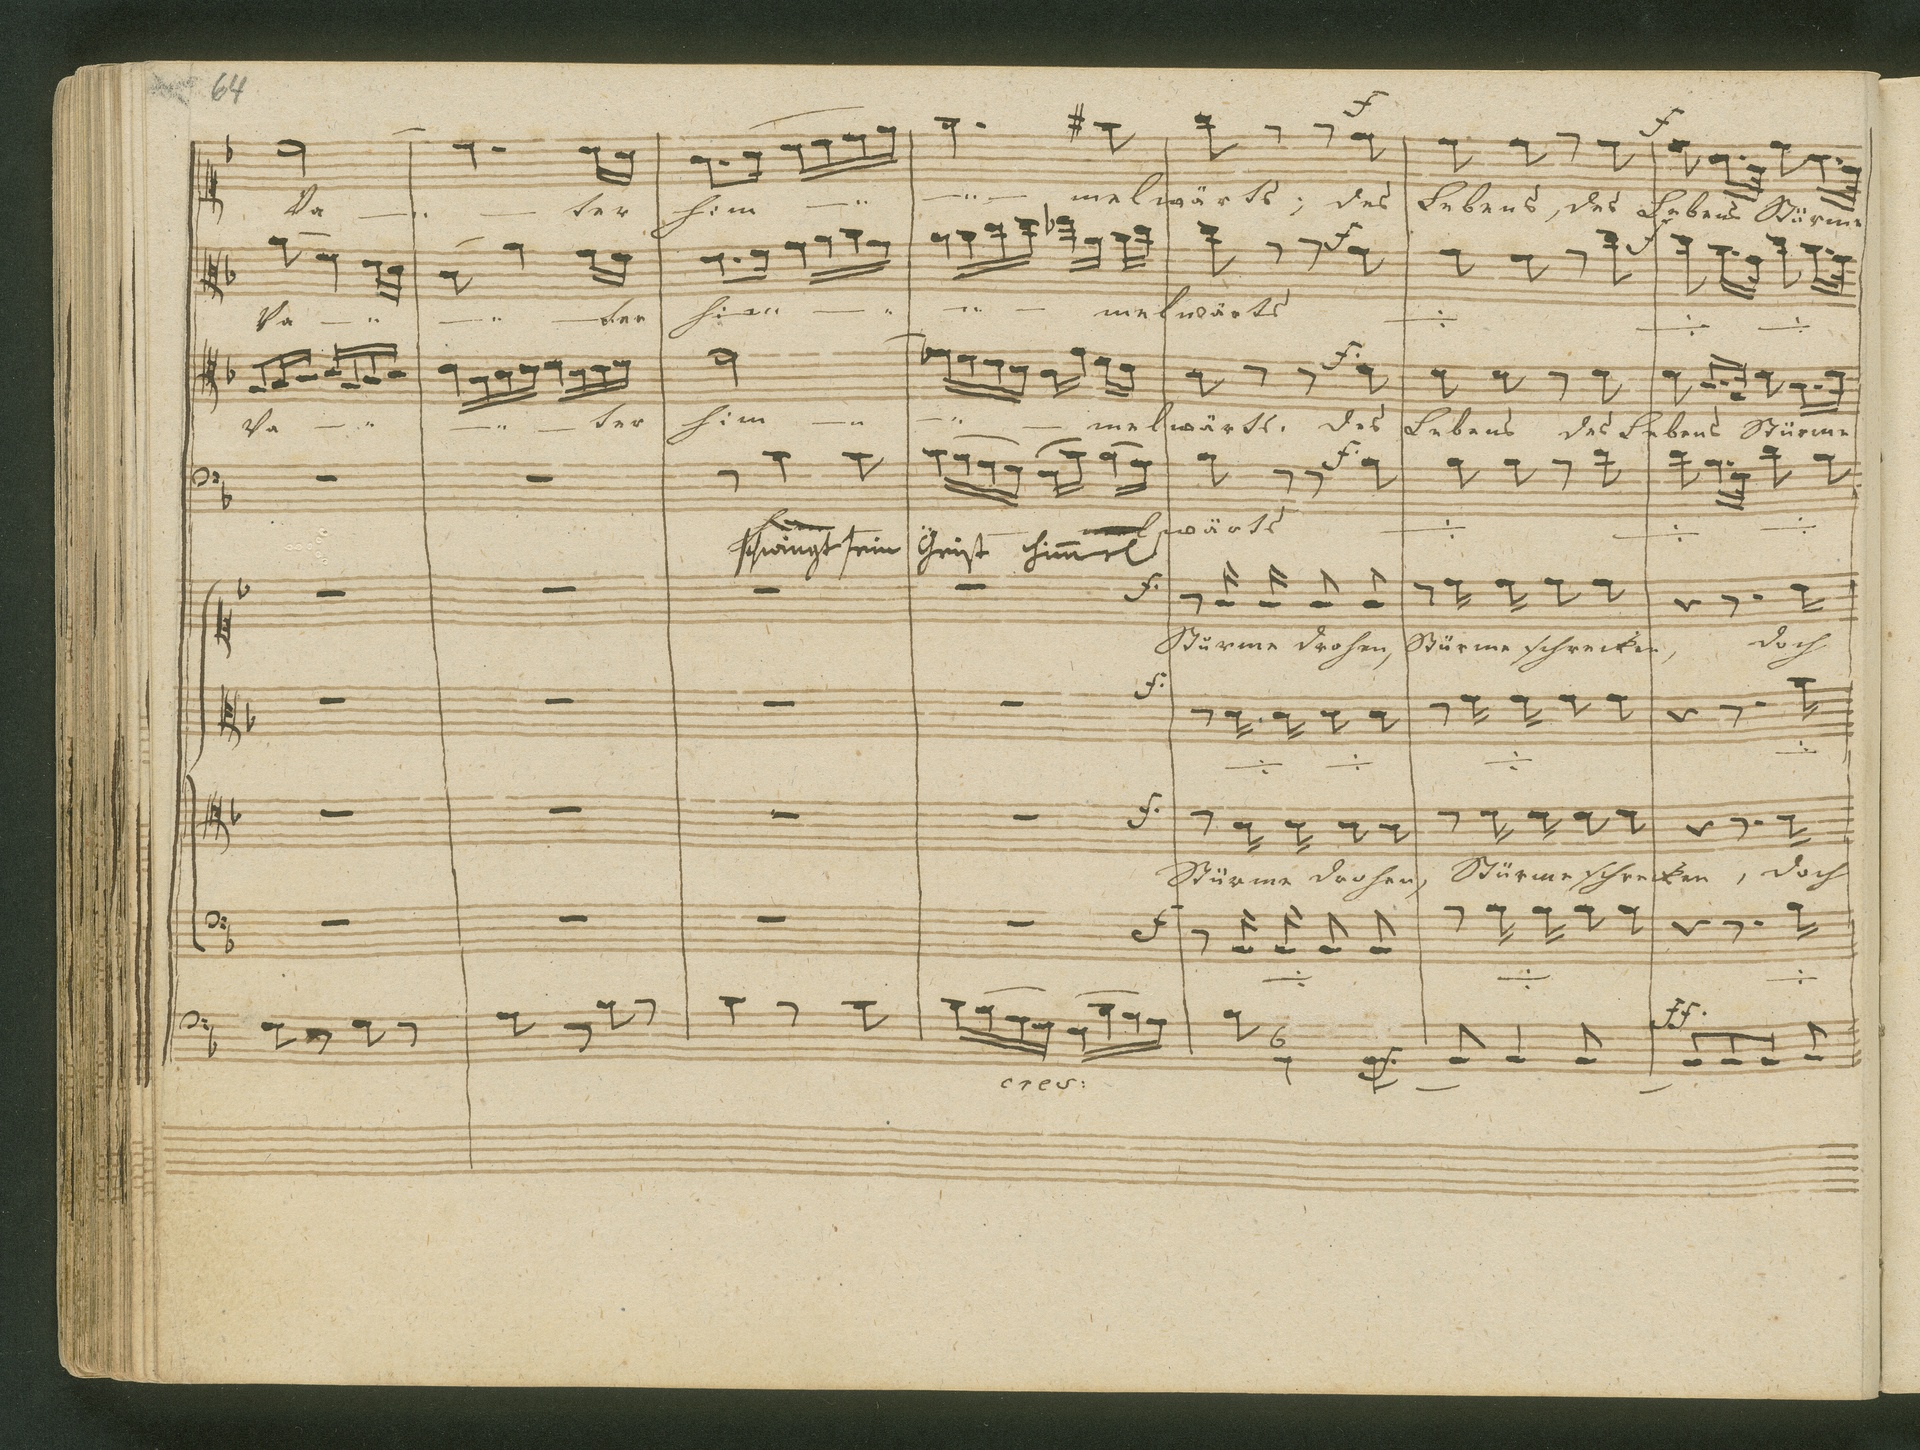 64
f f
Va — — ter him — — melwärts; des Lebens, des Lebens Stürme
f f
Va — — — ter him — — melwärts
f.
Va — — — ter him — — — melwärts. des Lebens des Lebens Stürme
f.
lwärts
schwingt sein Geist himmel
f.
Stürme drohen, Stürme schrecken, doch
f.
f.
Stürme drohen, Stürme schrecken, doch
f
ff.
6
f.
cres: